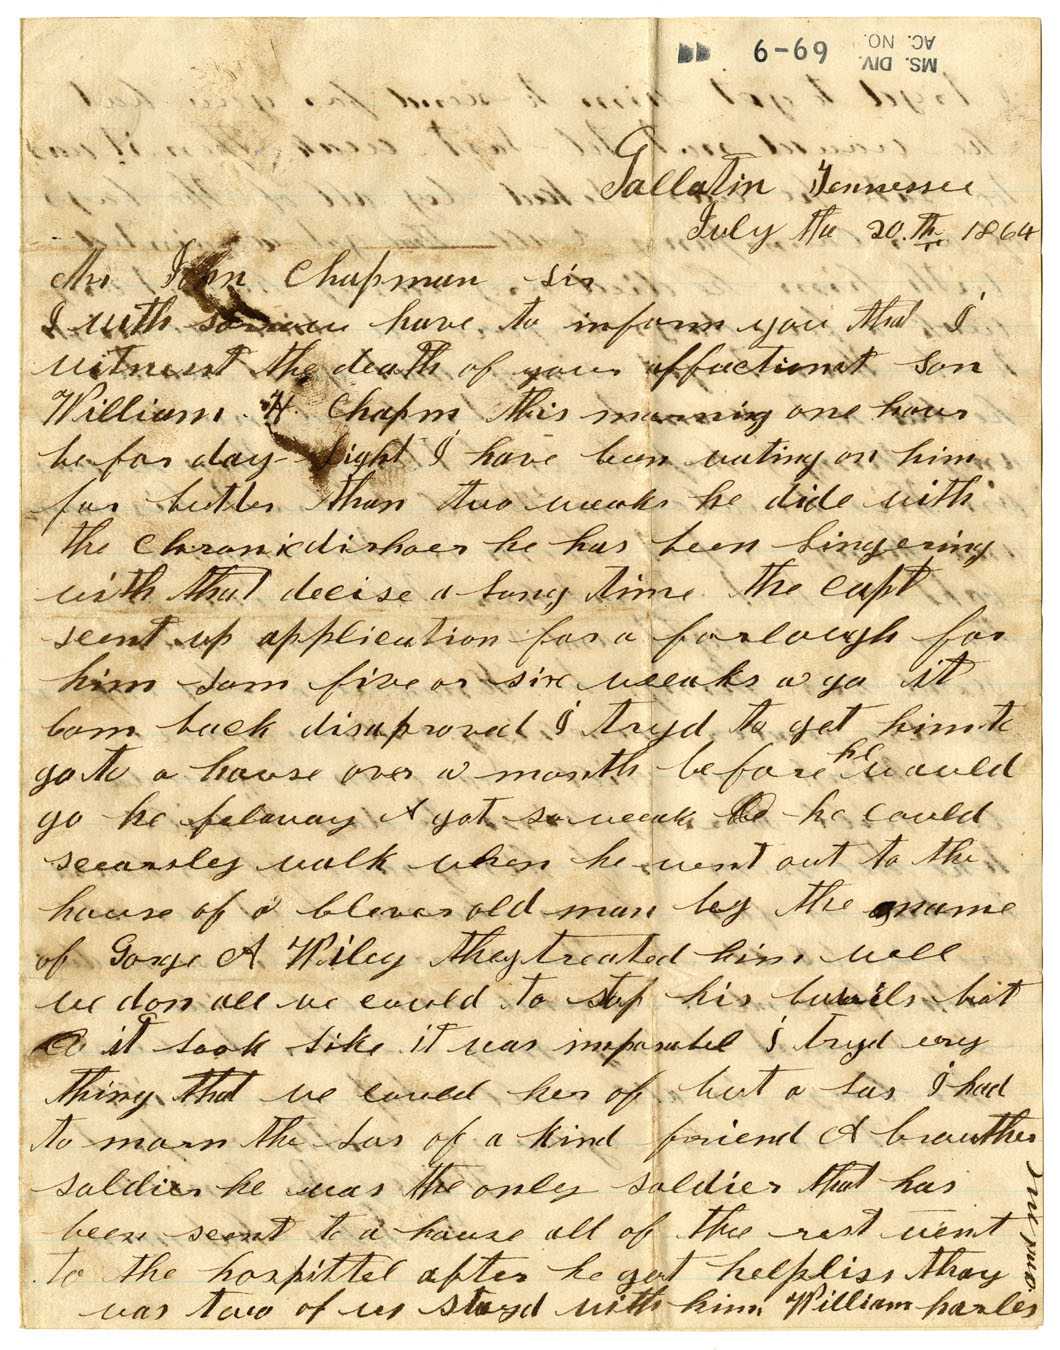 MS. DIV.
AC. NO.
6-69
Gallatin Tennessee
July the 20.th 1864
Mr John Chapman sir
I with sorrow have to inform you that I
witnesst the death of your affectionat son
William. H. Chapm this morning one hour
befor day-light I have been wating on him
for better than two weaks he dide with
the Chronicdirhoer he has been lingering
with that decise a long time. the capt
seent up application for a forlough for
him som five or six weeaks a go it
com back disaproved I tryd to get him to
go to a house over a month before he would
go he got so weak he could
scearsley walk when he went out to the
house of a clever old man by the name
of Gorge A Wiley they treated him well
we don all we could to stop his bowils but
it look like it was imposabel I tryd evry
thing that we could her of but a las I had
to morn the los of a kind friend & brouther
soldier he was the only soldier that has
been seent to a house all of the rest went
to the hospittel after he got helpliss thay
was two of us stayd with him William parles
and